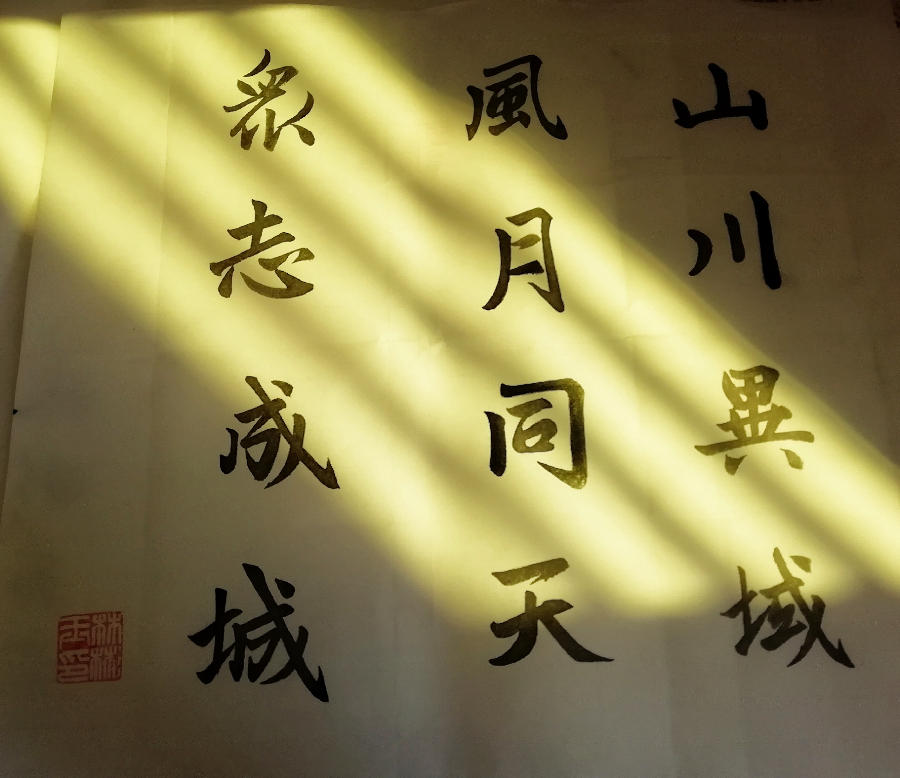 山川異域
風月同天
眾志成城